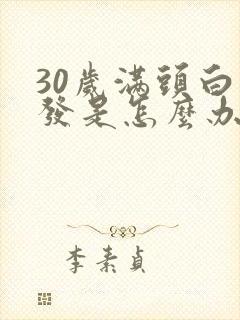 30歲滿頭白
發是怎麼办
李素貞